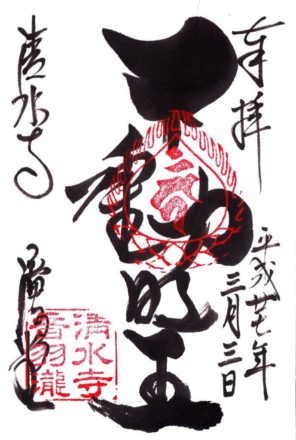 奉拝
平成廿七年
三月三日
不動明王
清水寺
清水寺
音羽瀧